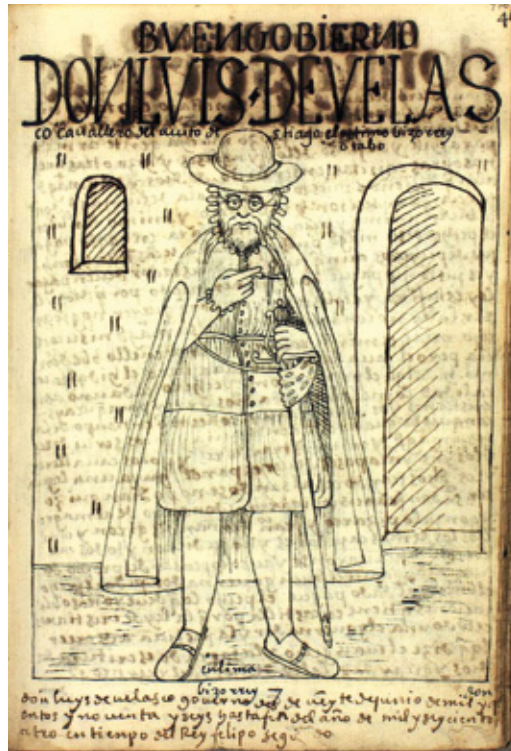 BVENGOBIERNO
DONLVIS·DEVELAS
co Cauallero del auito de s̃tiago el otimo bizorrey
otabo
en lima
bizorrey 7 don
don luys de uelasco gouerno des de ueyte de junio de mil y
entos y no uenta y seys hasta fin del año de mil y seycientos
atro en tiempo del Rey felipo segũdo